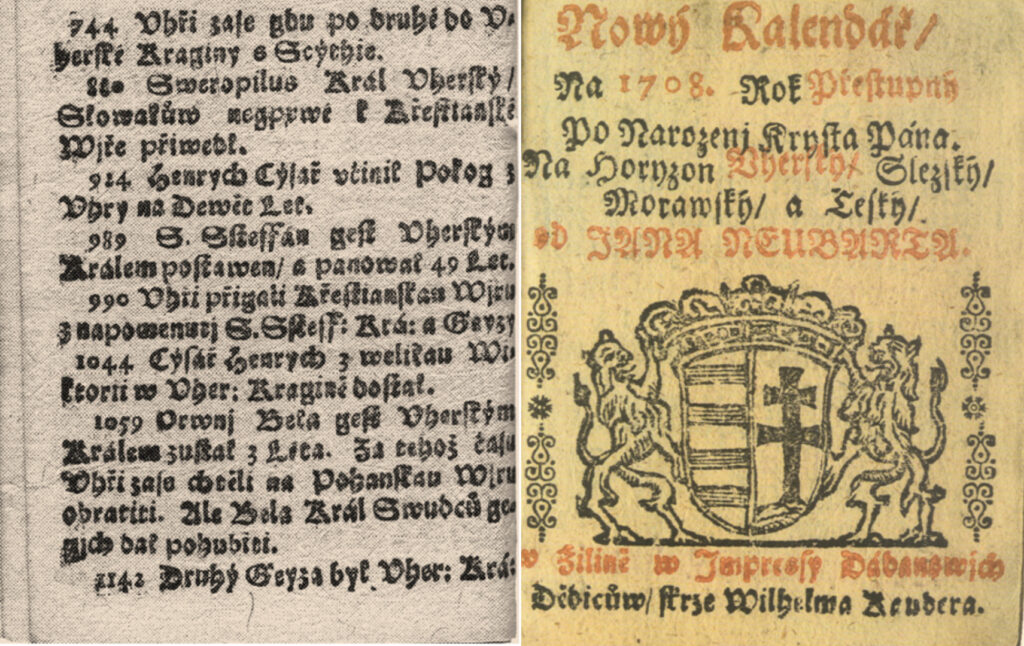 744 Vhři zase gdu po druhé do V-
herské Kraginy s Scýthie.
880 Sweropilus Král Vherský/
Slowakůw neyprwé k Křestianské
Wjře přiwedl.
914 Henrych Cýsař včinil Pokog z
Vhry na Dewět Let.
989 S. Ssteffán gest Vherským
Králem postawen/ a panowal 49 Let.
990 Vhři přigali Křestianskau Wjru
z napomenutj S. Ssteff: Krá: a Geyzy
1044 Cýsář Henrych z welikau Wi-
ktorii w Vher: Kragině dostal.
1059 Orwnj Bela gest Vherským
Králem zustal 3 Léta. Za tehož času
Vhři zase chtěli na Pohanskau Wjru
obratiti. Ale Bela Král Swudců ge-
gich dal pohubiti.
1142 Druhý Geyza byl Vher: Krá:
Nowý Kalendář/
Na 1708. Rok Přestupný
Po Narozenj Krysta Pána.
Na Horyzon Vherský/ Slezský/
Morawský/ a Český/
od JANA NEUBARTA.
w Žilině w Impressy Dádanowých
Dědicůw/ skrze Wilhelma Kaudera.